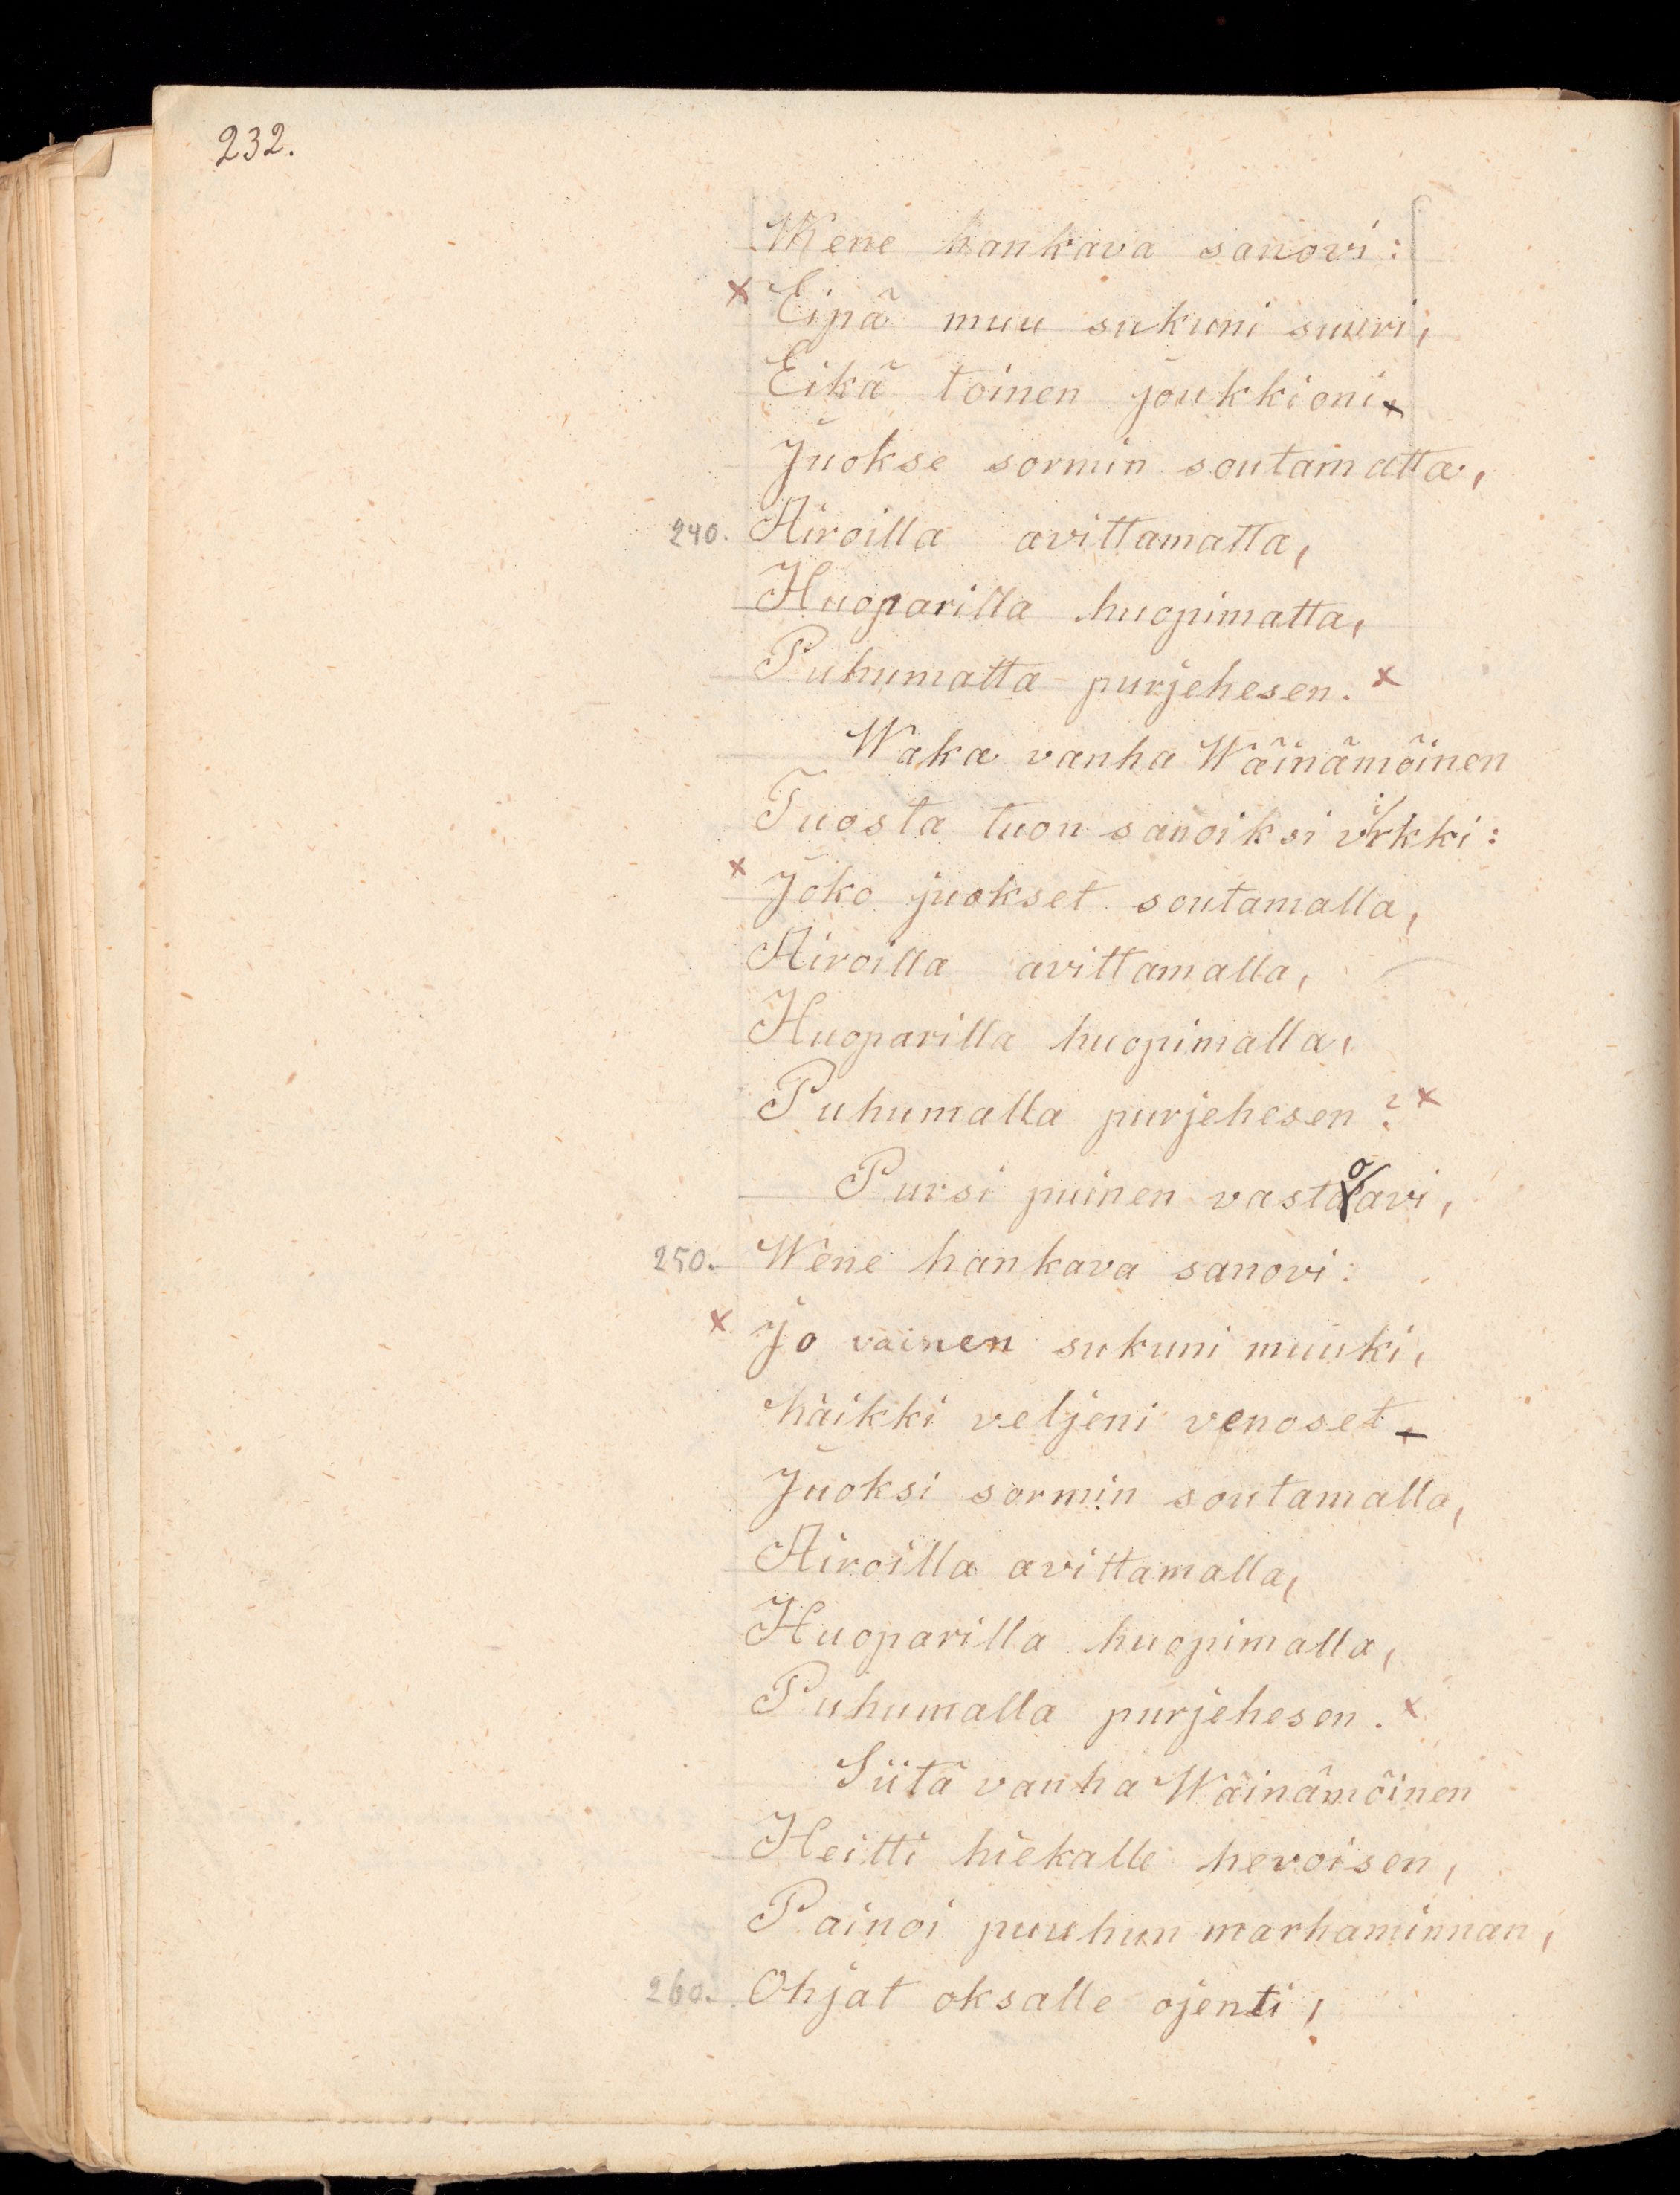 232.
Wene hankava sanovi:
× Eipä muu sukuni suuri,
Eikä toinen joukkioni
Juokse sormin soutamatta,
240. Airoilla avittamatta,
Huoparilla huopimatta,
Puhumatta purjehesen. ×
Waka vanha Wäinämöinen
Tuosta tuon sanoiksi virkki:
× Joko juokset soutamalla,
Airoilla avittamalla,
Huoparilla huopimalla,
Puhumalla purjehesen? ×
Pursi puinen vastoavi,
250. Wene hankava sanovi:
× Jo vainen sukuni muuki,
kaikki veljeni venoset
Juoksi sormin soutamalla,
Airoilla avittamalla,
Huoparilla huopimalla,
Puhumalla purjehesen. ×
Siitä vanha Wäinämöinen
Heitti hiekalle hevoisen,
Painoi puuhun marhaminnan,
260. Ohjat oksalle ojenti,